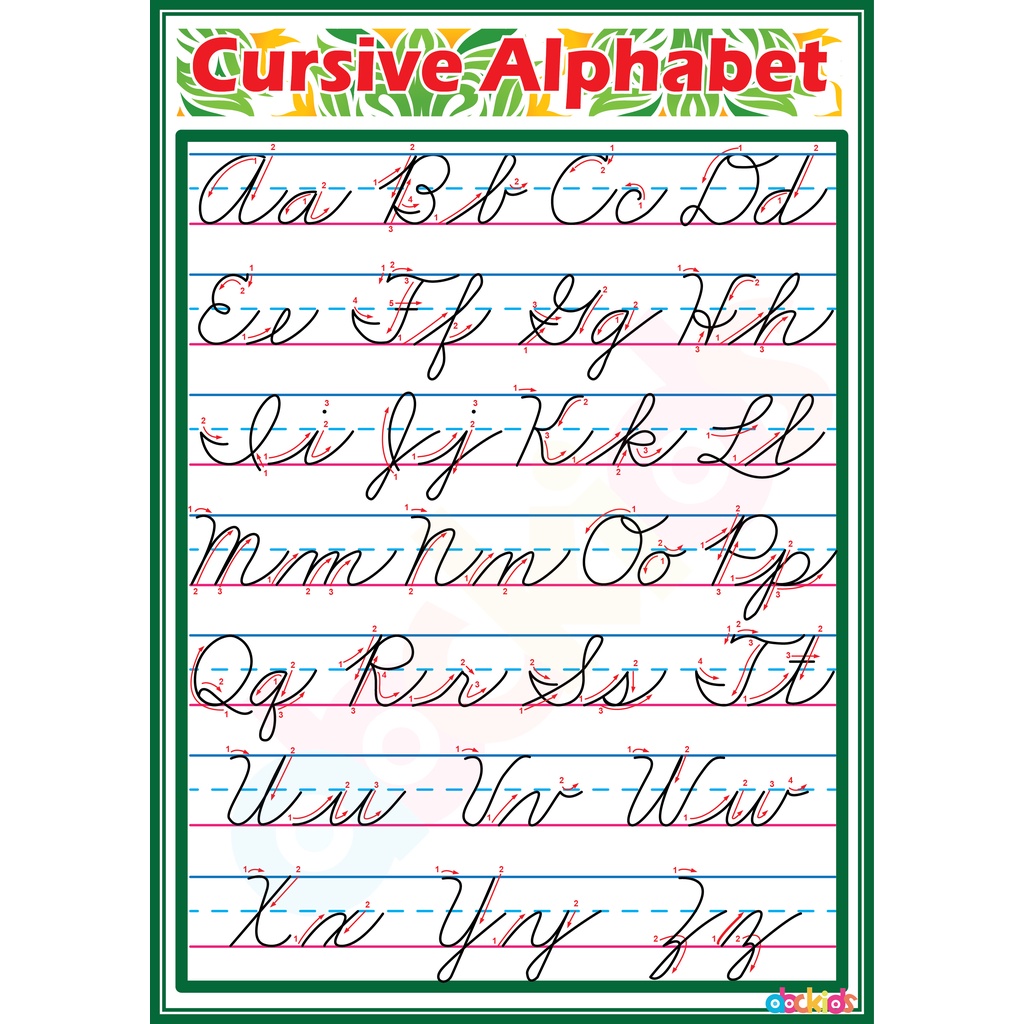 Cursive Alphabet
Aa Bb Cc Dd
Ee Ff Gg Hh
Ii Jj Kk Ll
Mm Nn Oo Pp
Qq Rr Ss Tt
Uu Vv Ww
Xx Yy Zz
abckids